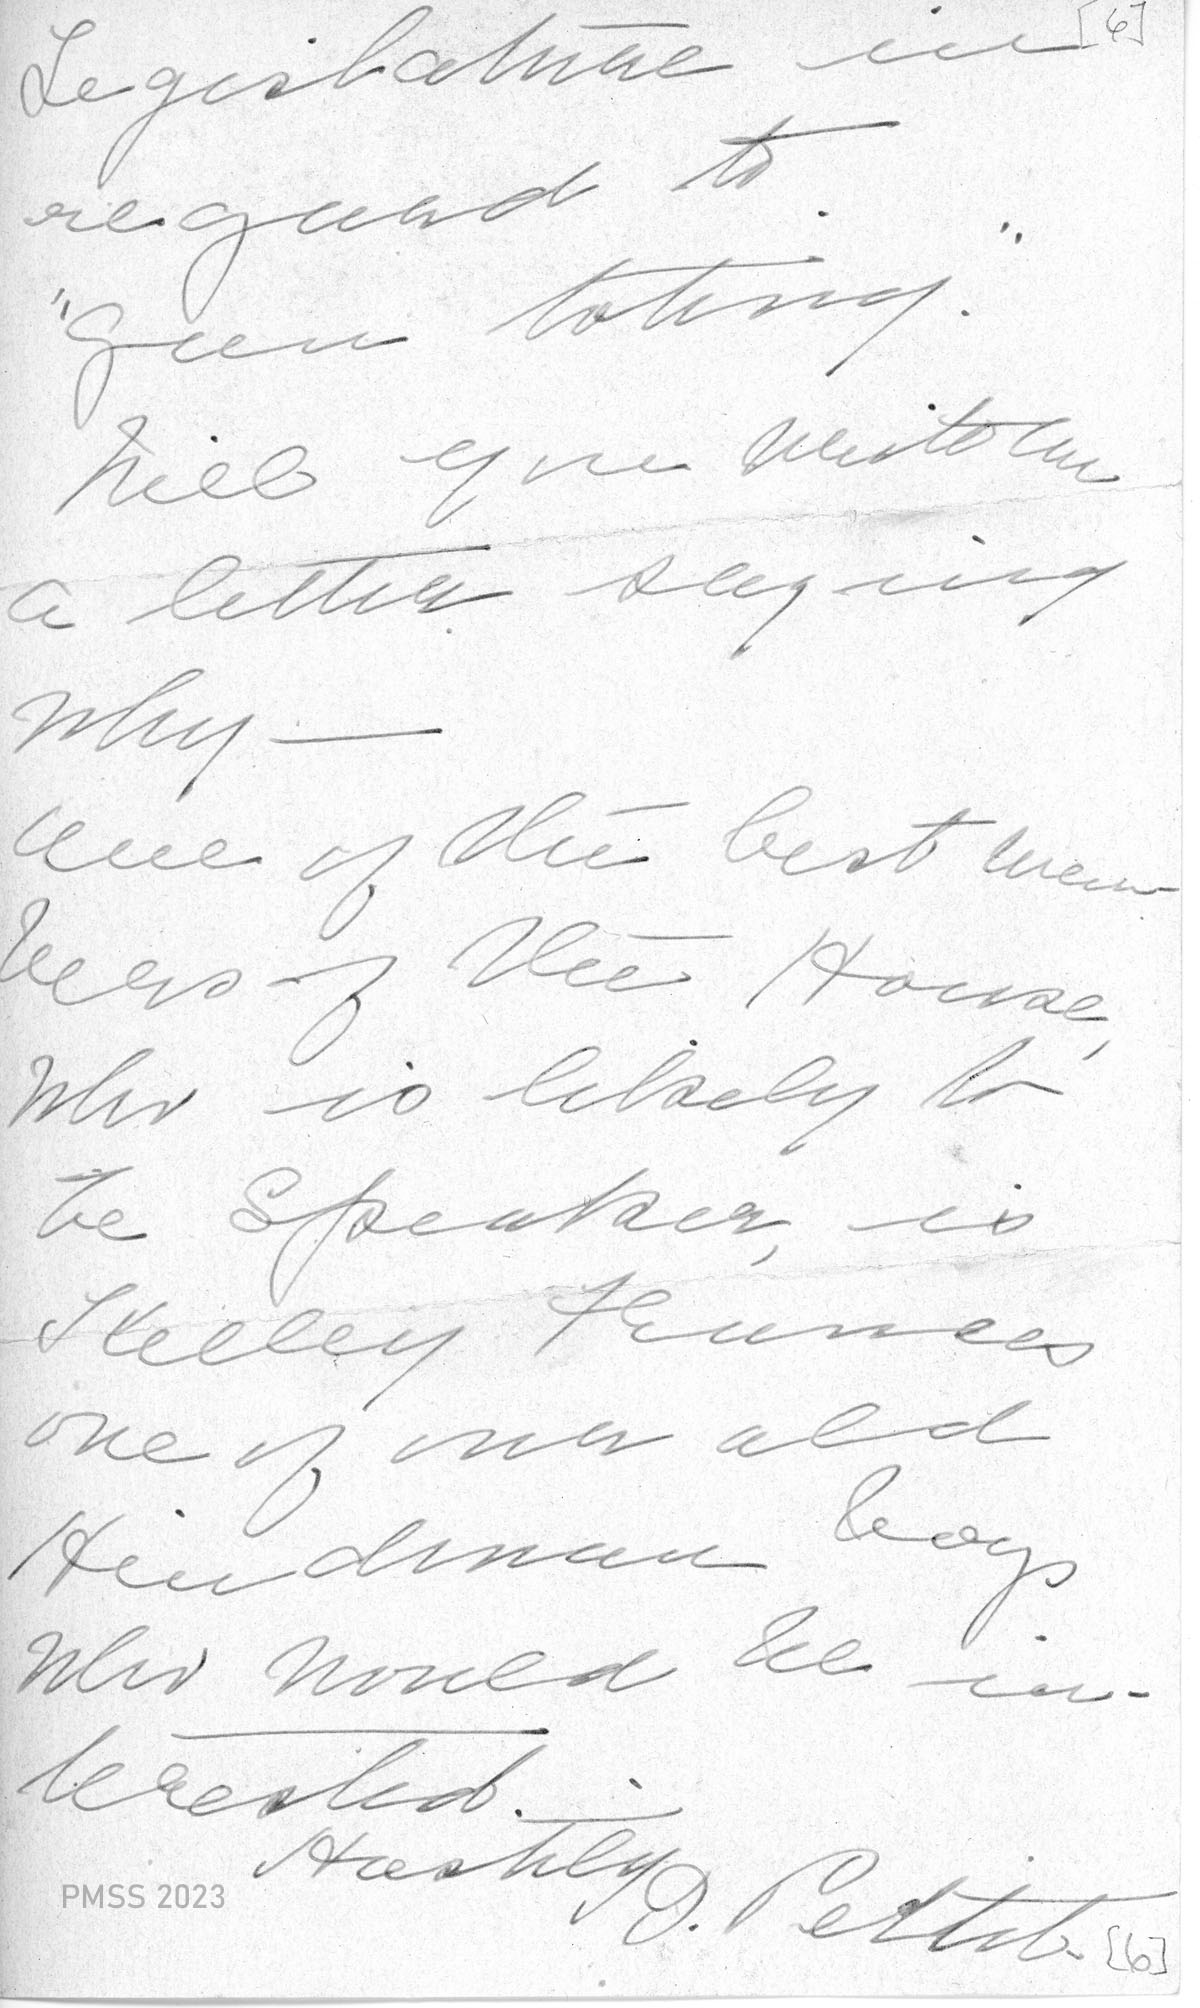 [6]
Legislature in
regard to
"gun toting."
Will you write me
a letter saying
why —
one of the best mem-
bers of the House,
who is likely to
be Speaker, is
Kelley Francis
one of our old
Hindman boys
who would be in-
terested.
Hastily
D. Pettit
[6]
PMSS 2023